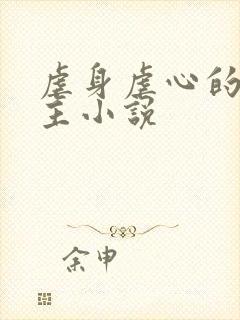 虐身虐心的
主小説
余申